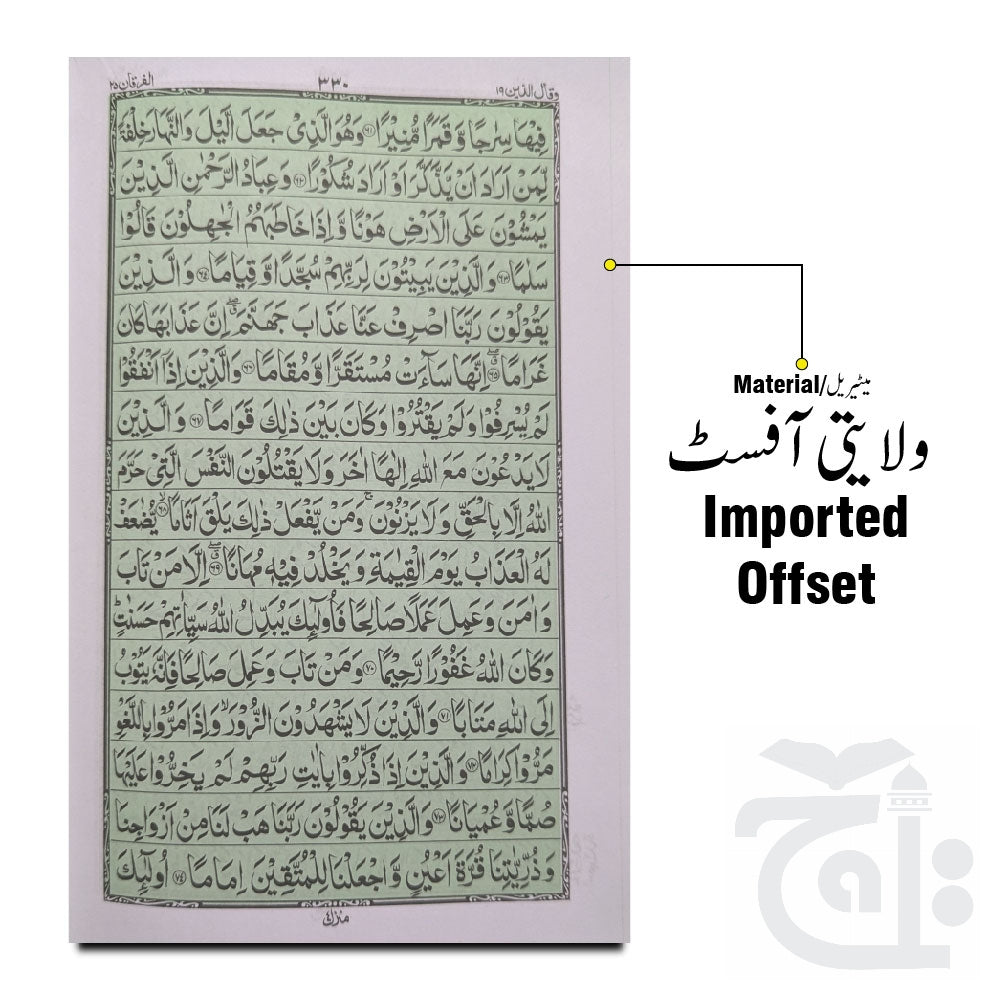 وقال الذين ١٩
٣٣٠
الفرقان ٢٥
فِيْهَا سِرٰجًا وَّقَمَرًا مُّنِيْرًا ﴿٦١﴾ وَهُوَ الَّذِيْ جَعَلَ الَّيْلَ وَالنَّهَارَ خِلْفَةً
لِّمَنْ اَرَادَ اَنْ يَّذَّكَّرَ اَوْ اَرَادَ شُكُوْرًا ﴿٦٢﴾ وَعِبَادُ الرَّحْمٰنِ الَّذِيْنَ
يَمْشُوْنَ عَلَى الْاَرْضِ هَوْنًا وَّاِذَا خَاطَبَهُمُ الْجٰهِلُوْنَ قَالُوْا
سَلٰمًا ﴿٦٣﴾ وَالَّذِيْنَ يَبِيْتُوْنَ لِرَبِّهِمْ سُجَّدًا وَّقِيَامًا ﴿٦٤﴾ وَالَّذِيْنَ
يَقُوْلُوْنَ رَبَّنَا اصْرِفْ عَنَّا عَذَابَ جَهَنَّمَ ۖ اِنَّ عَذَابَهَا كَانَ
غَرَامًا ﴿٦٥﴾ اِنَّهَا سَآءَتْ مُسْتَقَرًّا وَّمُقَامًا ﴿٦٦﴾ وَالَّذِيْنَ اِذَآ اَنْفَقُوْا
لَمْ يُسْرِفُوْا وَلَمْ يَقْتُرُوْا وَكَانَ بَيْنَ ذٰلِكَ قَوَامًا ﴿٦٧﴾ وَالَّذِيْنَ
لَا يَدْعُوْنَ مَعَ اللّٰهِ اِلٰهًا اٰخَرَ وَلَا يَقْتُلُوْنَ النَّفْسَ الَّتِيْ حَرَّمَ
اللّٰهُ اِلَّا بِالْحَقِّ وَلَا يَزْنُوْنَ ۚ وَمَنْ يَّفْعَلْ ذٰلِكَ يَلْقَ اَثَامًا ﴿٦٨﴾ يُّضٰعَفْ
لَهُ الْعَذَابُ يَوْمَ الْقِيٰمَةِ وَيَخْلُدْ فِيْهٖ مُهَانًا ﴿٦٩﴾ اِلَّا مَنْ تَابَ
وَاٰمَنَ وَعَمِلَ عَمَلًا صَالِحًا فَاُولٰٓئِكَ يُبَدِّلُ اللّٰهُ سَيِّاٰتِهِمْ حَسَنٰتٍ
وَكَانَ اللّٰهُ غَفُوْرًا رَّحِيْمًا ﴿٧٠﴾ وَمَنْ تَابَ وَعَمِلَ صَالِحًا فَاِنَّهٗ يَتُوْبُ
اِلَى اللّٰهِ مَتَابًا ﴿٧١﴾ وَالَّذِيْنَ لَا يَشْهَدُوْنَ الزُّوْرَ ۙ وَاِذَا مَرُّوْا بِاللَّغْوِ
مَرُّوْا كِرَامًا ﴿٧٢﴾ وَالَّذِيْنَ اِذَا ذُكِّرُوْا بِاٰيٰتِ رَبِّهِمْ لَمْ يَخِرُّوْا عَلَيْهَا
صُمًّا وَّعُمْيَانًا ﴿٧٣﴾ وَالَّذِيْنَ يَقُوْلُوْنَ رَبَّنَا هَبْ لَنَا مِنْ اَزْوَاجِنَا
وَذُرِّيّٰتِنَا قُرَّةَ اَعْيُنٍ وَّاجْعَلْنَا لِلْمُتَّقِيْنَ اِمَامًا ﴿٧٤﴾ اُولٰٓئِكَ
منزل ٤
Material/میٹیریل
ولایتی آفسٹ
Imported
Offset